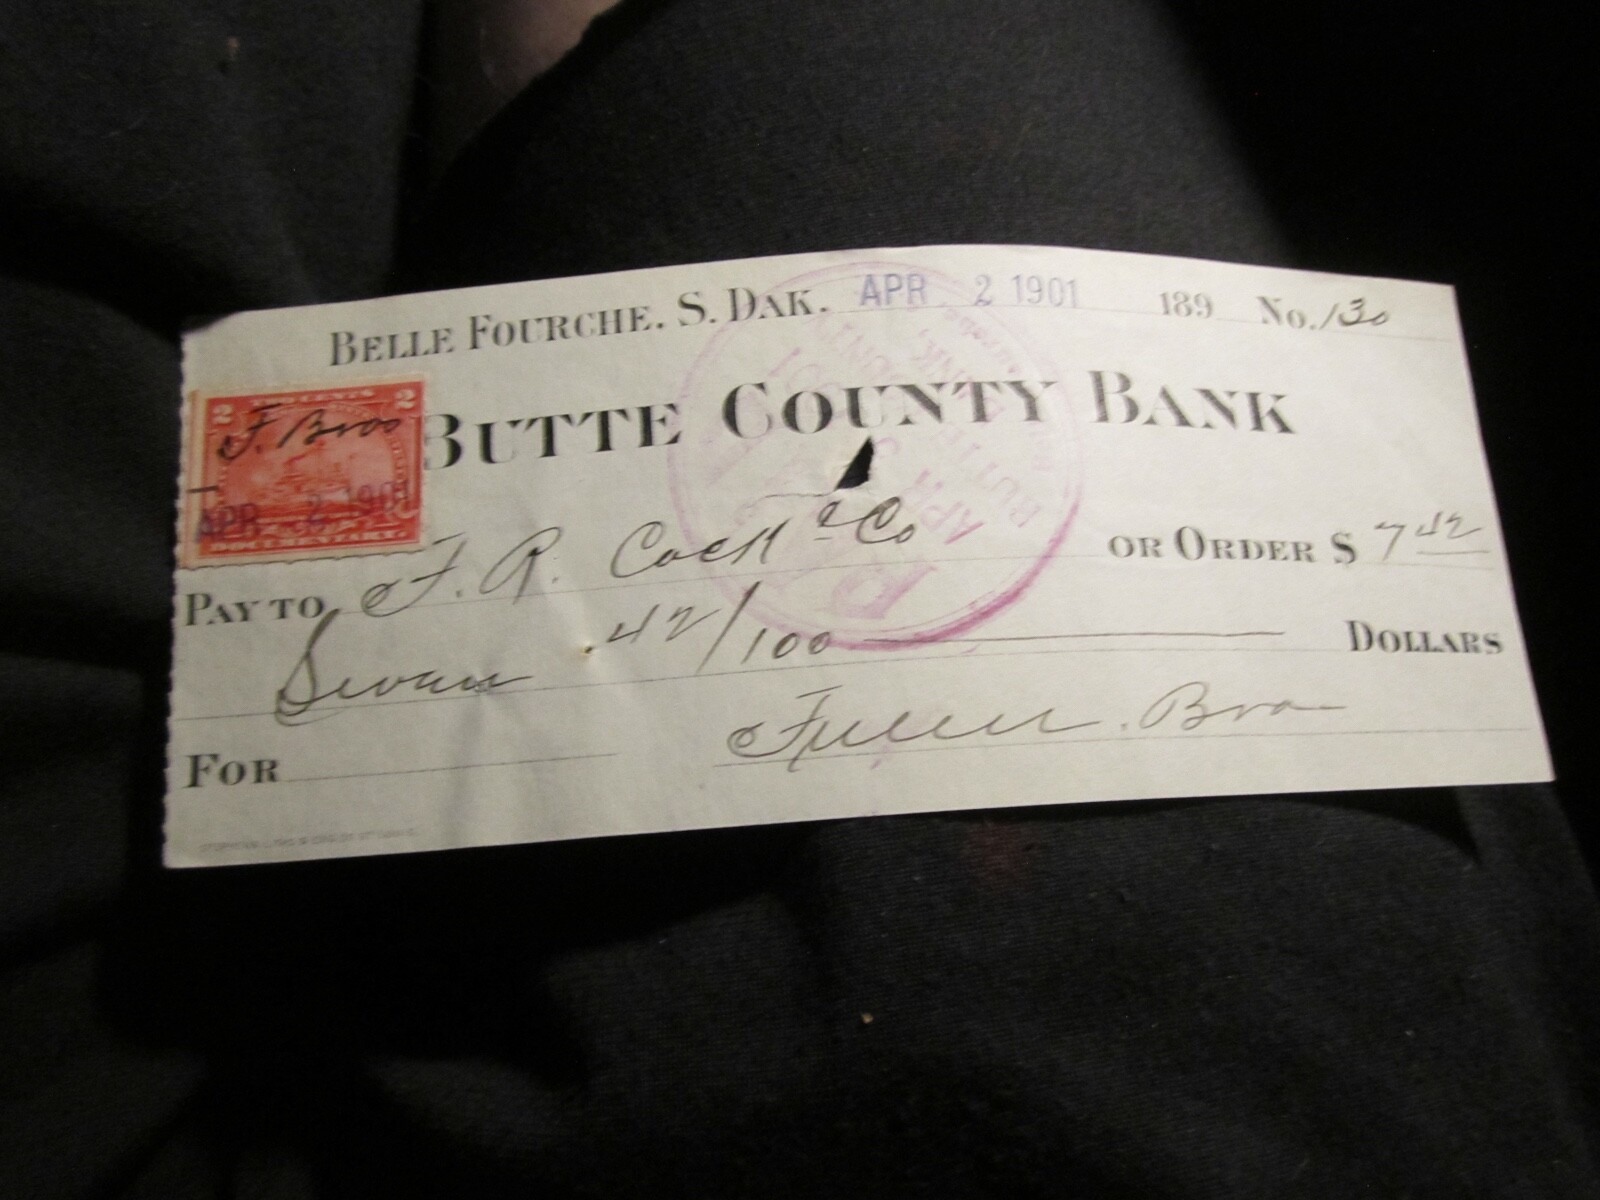 BELLE FOURCHE. S. DAK. APR 2 1901 189 No. 130
BUTTE COUNTY BANK
TWO CENTS
2 2
F. Bros
APR 2 1901
DOCUMENTARY.
PAY TO F. R. Cock & Co OR ORDER $ 7 42
Seven .42/100 DOLLARS
FOR Fuller Bros